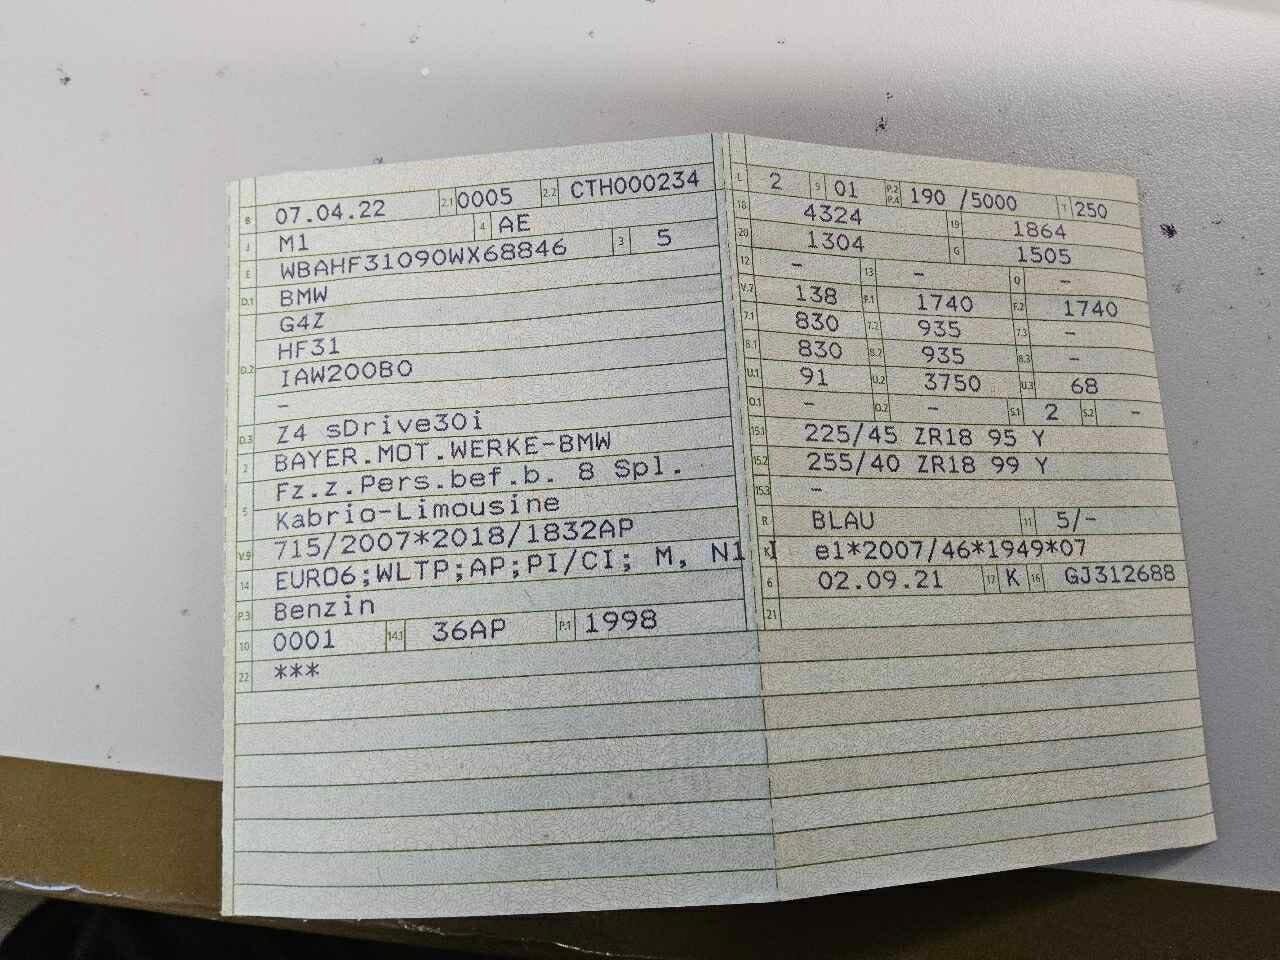 B 07.04.22 2.1 0005 2.2 CTH000234
J M1 4 AE
E WBAHF31090WX68846 3 5
D.1 BMW
G4Z
D.2 HF31
IAW200B0
-
D.3 Z4 sDrive30i
2 BAYER.MOT.WERKE-BMW
5 Fz.z.Pers.bef.b. 8 Spl.
Kabrio-Limousine
V.9 715/2007*2018/1832AP
14 EURO6;WLTP;AP;PI/CI; M, N1 I
P.3 Benzin
10 0001 14.1 36AP P.1 1998
22 ***
L 2 9 01 P.2 P.4 190 /5000 T 250
18 4324 19 1864
20 1304 G 1505
12 - 13 - Q -
V.7 138 F.1 1740 F.2 1740
7.1 830 7.2 935 7.3 -
8.1 830 8.2 935 8.3 -
U.1 91 U.2 3750 U.3 68
O.1 - O.2 - S.1 2 S.2 -
15.1 225/45 ZR18 95 Y
15.2 255/40 ZR18 99 Y
15.3 -
R BLAU 11 5/-
K e1*2007/46*1949*07
6 02.09.21 17 K 16 GJ312688
21